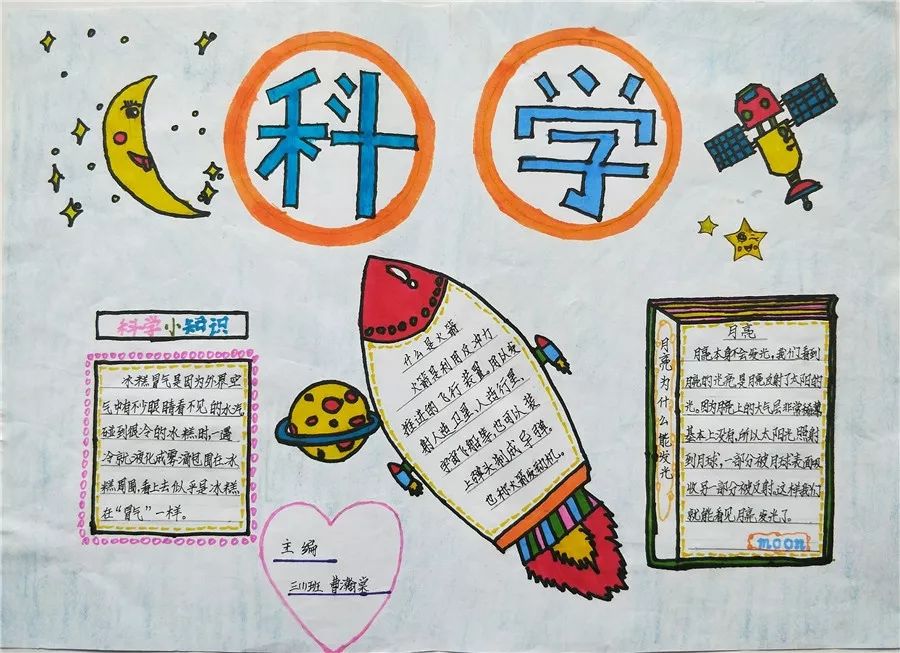 科学
科学小知识
冰糕冒气是因为外界空
气中有不少眼睛看不见的水汽
碰到很冷的冰糕时,一遇
冷就液化成雾滴包围在冰
糕周围,看上去似乎是冰糕
在“冒气”一样。
什么是火箭
火箭是利用反冲力
推进的飞行装置,用以发
射人造卫星、人造行星、
宇宙飞船等,也可以装
上弹头制成导弹。
也称火箭发动机。
主编
三川班 曹瀚棠
月亮为什么能发光
月亮
月亮本身不会发光,我们看到
月亮的光亮,是月亮反射了太阳的
光。因为月亮上的大气层非常稀薄
基本上没有,所以太阳光照射
到月球,一部分被月球表面吸
收另一部分被反射,这样我们
就能看见月亮发光了。
moon